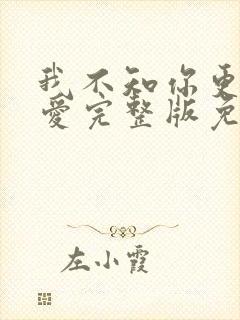 我不知你更
爱完整版免
左小霞